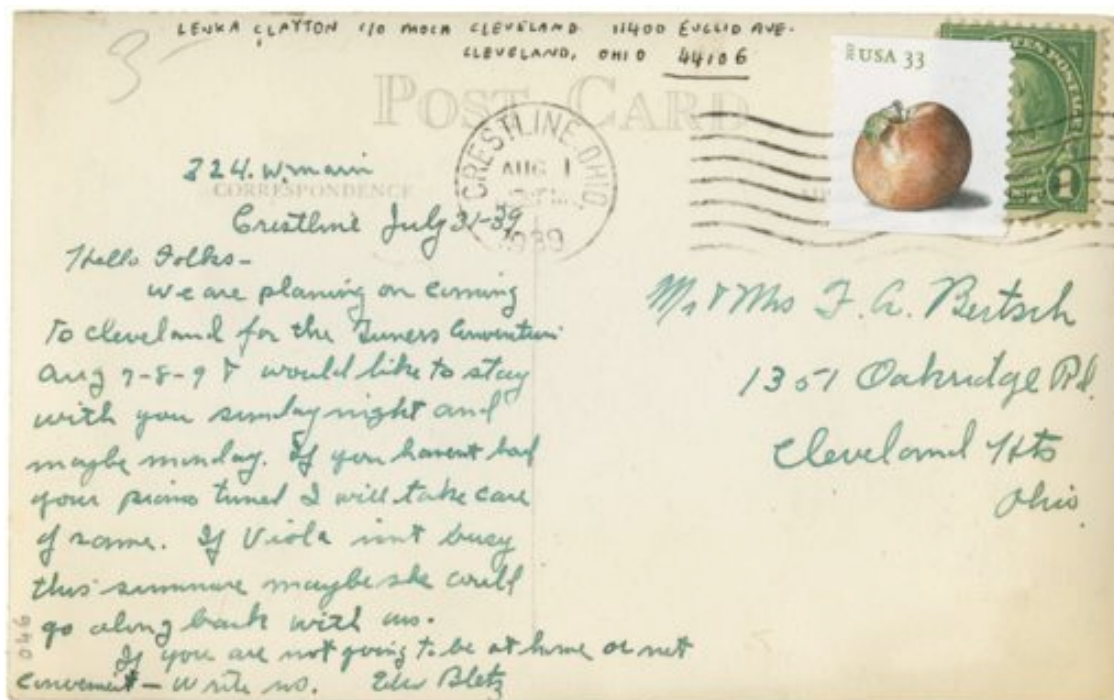 LENKA CLAYTON c/o MOCA CLEVELAND 11400 EUCLID AVE.
CLEVELAND, OHIO 44106
3-
POST CARD
USA 33
1
CRESTLINE, OHIO
AUG 1
1939
CORRESPONDENCE
224. W. main
Crestline July 31-39
Hello Folks-
We are planing on coming
to Cleveland for the Tuners Convention
Aug 7-8-9 & would like to stay
with you sunday night and
maybe monday. If you havent had
your piano tuned I will take care
of same. If Viola isnt busy
this summer maybe she could
go along back with us.
If you are not going to be at home or not
convenient - write us. Bletz
Mr & Mrs F. A. Bertsch
1351 Oakridge Rd.
Cleveland Hts
Ohio.
046